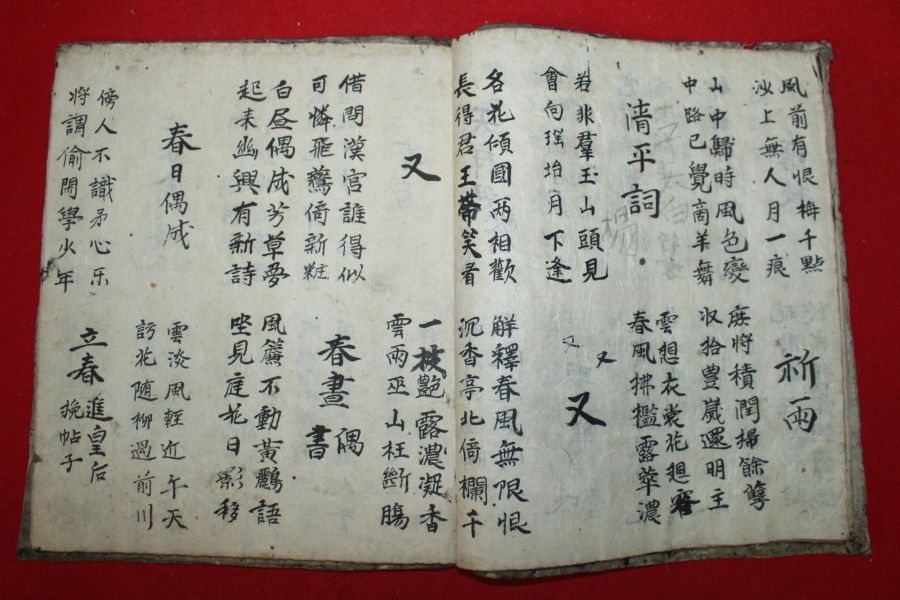 風前有恨梅千點
沙上無人月一痕
祈雨
山中歸時風色變
中路已覺商羊舞
庶將積潤掃餘孽
収拾豊歲還明主
清平詞
雲想衣裳花廻容
春風拂檻露華濃
若非羣玉山頭見
會向瑤坮月下逢
又
又
又
各花傾國两相歡
長得君王帶笑看
解釋春風無限恨
沉香亭北倚欄干
又
一枝艷露濃凝香
雲雨巫山枉斷膓
借問漢宮誰得似
可憐飛鷰倚新粧
春晝偶書
白昼偶成芳草夢
起来幽興有新詩
風簾不動黃鸝語
坐見庭花日影移
春日偶成
雲淡風輕近午天
訪花随柳過前川
傍人不識予心乐
將謂偷閑學少年
立春進皇后挽帖子